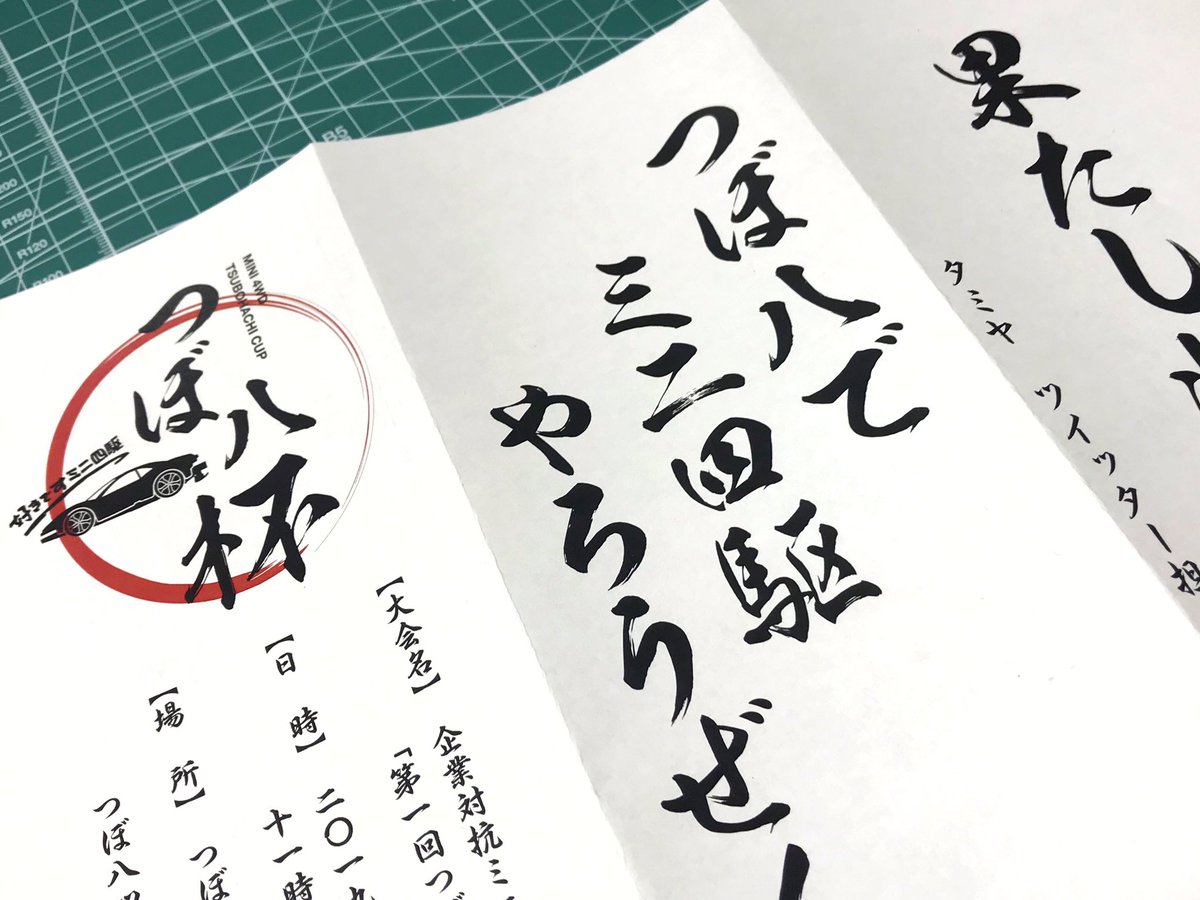 果たし
タミヤ ツイッター担
つぼ八で
ミニ四駆
やろうぜ！
MINI 4WD
TSUBOHACHI CUP
つぼ八杯
好きですミニ四駆
【大会名】 企業対抗ミ
「第一回つぼ
【日 時】 二〇一九
十一時
【場 所】 つぼ
つぼ八
B5
R150
R120